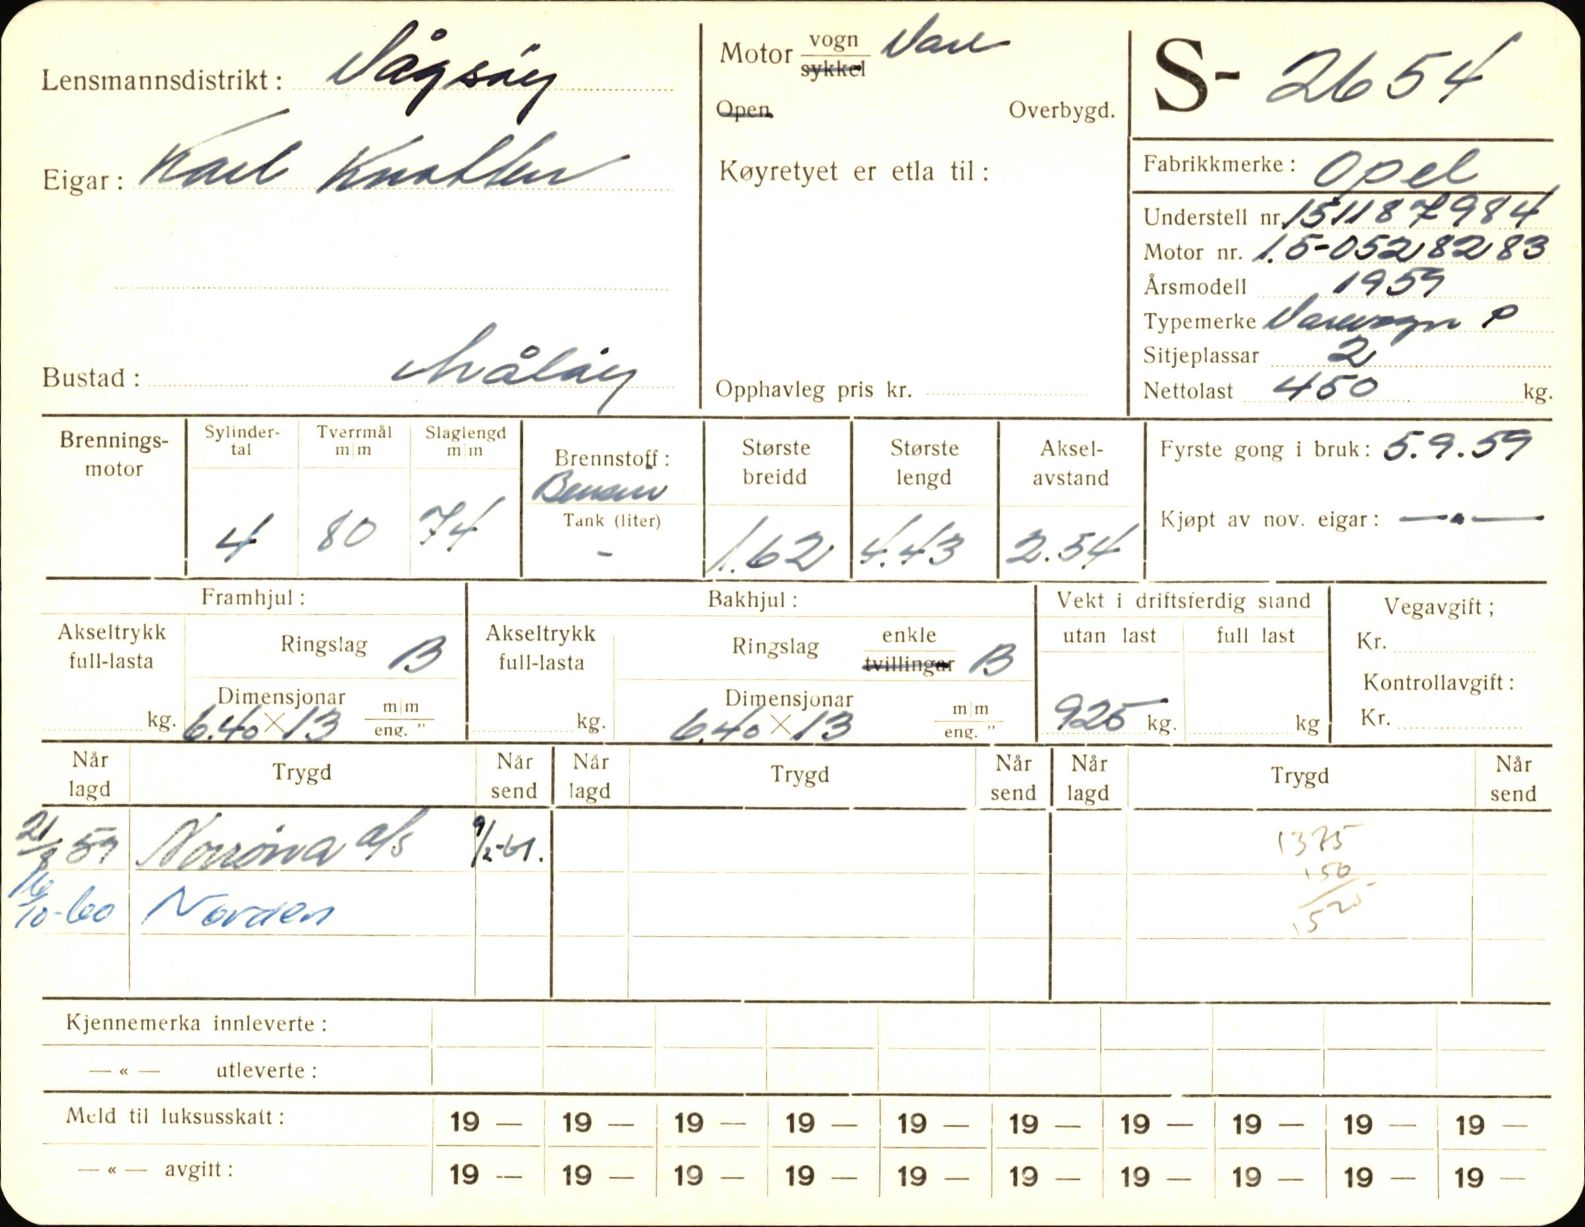 Lensmannsdistrikt: Vågsøy
Eigar: Karl Knatten
Bustad: Måløy
Motor vogn Vare
sykkel
Open Overbygd.
Køyretyet er etla til:
Opphavleg pris kr.
S- 2654
Fabrikkmerke: Opel
Understell nr. 151187984
Motor nr. 1.5-0528283
Årsmodell 1959
Typemerke Varevogn P
Sitjeplassar 2
Nettolast 450 kg.
Brennings-
motor
Sylinder-
tal
4
Tverrmål
m|m
80
Slaglengd
m|m
74
Brennstoff:
Bensin
Tank (liter)
-
Største
breidd
1.62
Største
lengd
4.43
Aksel-
avstand
2.54
Fyrste gong i bruk: 5.9.59
Kjøpt av nov. eigar: —"—
Framhjul:
Akseltrykk
full-lasta
kg.
Ringslag B
Dimensjonar m|m
6.40 × 13 eng. "
Bakhjul:
Akseltrykk
full-lasta
kg.
Ringslag enkle B
tvillingar
Dimensjonar m|m
6.40 × 13 eng. "
Vekt i driftsferdig stand
utan last full last
925 kg. kg
Vegavgift;
Kr.
Kontrollavgift:
Kr.
Når lagd Trygd Når send Når lagd Trygd Når send Når lagd Trygd Når send
21/8 59 Norrøna a/s 9/2-61. 1375
150
16/10-60 Norden 1525
Kjennemerka innleverte:
— « — utleverte:
Meld til luksusskatt: 19 — 19 — 19 — 19 — 19 — 19 — 19 — 19 — 19 — 19 —
— « — avgitt: 19 — 19 — 19 — 19 — 19 — 19 — 19 — 19 — 19 — 19 —